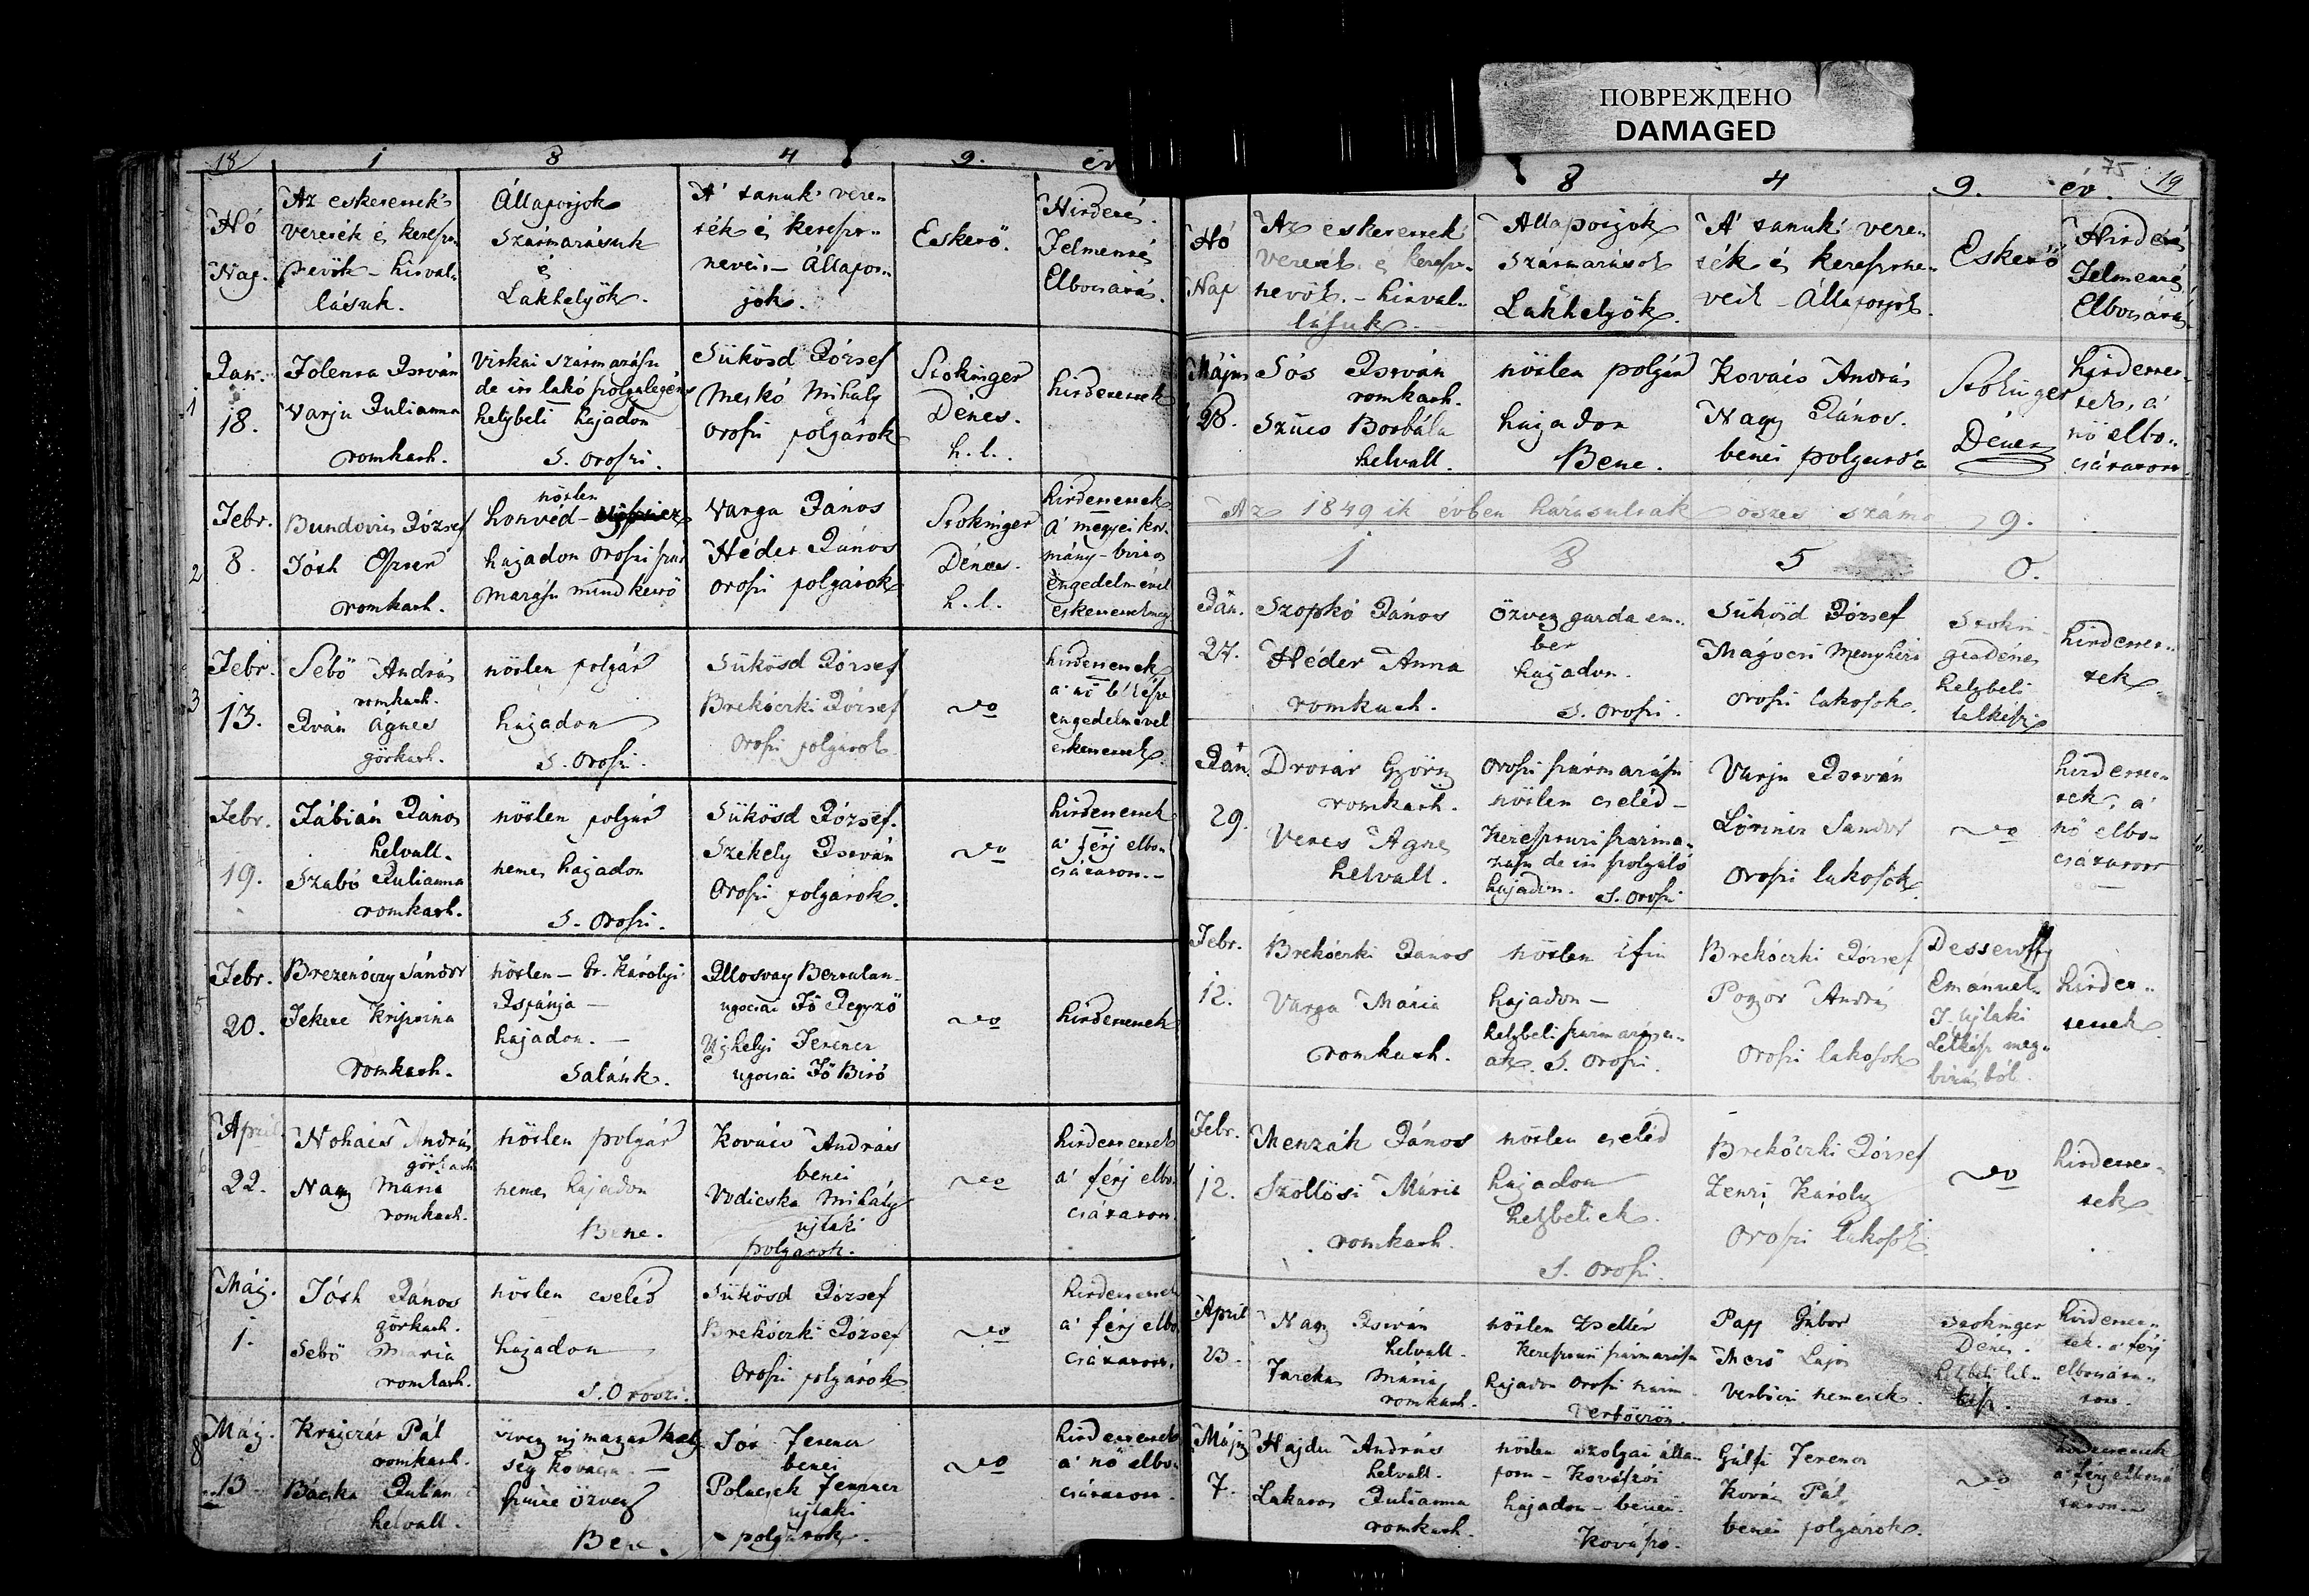 ПОВРЕЖДЕНО
DAMAGED
18 1 8 4 9. év
Hó
Nap.
Az eskettettek
vezeték és kereszt
nevök – hitval-
lásuk.
Állapotjok
Származásuk
és
Lakhelyök.
A' tanuk' veze-
ték és kereszt-
neveik – Állapot-
jok.
Eskető.
Hirdetés.
Felmentés
Elbocsátás.
1
Jan.
18.
Varju Julianna
romkath.
helybeli hajadon
S. Oroszi.
Sükösd József
Meskó Mihály
Oroszi polgárok
Stokinger
Dénes.
h. l.
hirdettettek
2
Febr.
8.
Bundovics József
Tóth Eszter
romkath.
nőtlen
honvéd –
hajadon Oroszi szár
mazásu mindkettő
Varga János
Héder János
Oroszi polgárok
Stokinger
Dénes.
h. l.
hirdettettek
A' megyei kor-
mány-biztos
engedelmével
eskettettek meg
3
Febr.
13.
Sebő András
romkath.
Iván Ágnes
görkath.
nőtlen polgár
hajadon
S. Oroszi.
Sükösd József
Brekóczki József
Oroszi polgárok
hirdettettek
engedelmével
eskettettek
Febr.
19.
Fábián János
helvall.
Szabó Julianna
romkath.
nőtlen polgár
nemes hajadon
S. Oroszi.
Sükösd József.
Székely István
Oroszi polgárok.
hirdettettek
a' férj elbo-
csátáson.–
5
Febr.
20.
Brezenóczy Sándor
Fekete Krisztina
romkath.
nőtlen – Gr. Károlyi
Ispánja –
hajadon. –
Salánk.
Illosvay Bertalan
ugocsai Fő Jegyző
Ujhelyi Ferencz
ugocsai Fő Biró
hirdettettek
April
22.
Nohács András
görkath
Nagy Mária
romkath.
nőtlen polgár
nemes hajadon
Bene.
Kovács András
benei
Vodicska Mihály
ujlaki
polgárok.
hirdettettek
a' férj elbo-
csátáson.
Máj.
1.
Tóth János
görkath.
Sebő Mária
romkath.
nőtlen cseléd
hajadon
S. Oroszi.
Sükösd József
Brekóczki József
Oroszi polgárok
hirdettettek
a' férj elbo
csátáson.
8
Máj.
13
Krajczár Pál
romkath.
helvall.
özvegy
Bene.
Ferencz
benei
ujlaki
polgárok.
hirdettettek
a' nő elbo-
csátáson.
8 4 9. év. 75 19
Hó
Nap
Az eskettettek
vezeték és kereszt-
nevök. – hitval-
lásuk.
Állapotjok
Származások
Lakhelyök.
A' tanuk' veze-
ték és keresztne-
veik – Állapotjok.
Eskető
Hirdetés
Felmentés
Elbocsátás.
Május
28.
Sós István
romkath.
Szücs Borbála
helvall.
nőtlen polgár
hajadon
Bene.
Kovács András
Nagy János.
benei polgárok
Stokinger
Dénes
hirdettet-
tek, a'
nő elbo-
csátáson
Az 1849 ik évben házasultak összes száma 9.
1 8 5 0.
Ján.
27.
Szopkó János
Héder Anna
romkath.
özvegy gazda em-
ber
hajadon.
S. Oroszi.
Sükösd József
Mágócsi Menyhért
Oroszi lakosok.
Stokin-
ger Dénes
helybeli
lelkész
hirdettet-
tek
Ján.
29.
romkath.
Veres Ágnes
helvall.
Oroszi származásu
nőtlen cseléd –
hajadon. S. Oroszi
Varju István
Lőrincz Sándor
Oroszi lakosok.
hirdettet-
tek, a'
nő elbo-
csátáson
Febr.
12.
Brekóczki János
Varga Mária
romkath.
nőtlen ifiu
hajadon –
helybeli származásu-
ak. S. Oroszi.
Brekóczki József
Pogor András
Oroszi lakosok
Dessewffy
Emánuel
T. Ujlaki
Lelkész meg-
bizásból.
hirdet-
tettek
Febr.
12.
Menzák János
Szöllősi Mária
romkath.
nőtlen cseléd
hajadon
helybeliek.
S. Oroszi.
Brekóczki József
Károly
Oroszi lakosok.
hirdettet-
tek
April
23.
Nagy István
helvall.
Mária
romkath.
nőtlen zsellér
hajadon Oroszi szárm
Verbőczön.
Papp Gábor
Lajos
Verbőczi nemesek.
Stokinger
Dénes.
helybeli lel-
kész.
hirdettet-
tek. a' férj
elbocsátá-
son.
Május
7.
Hajdu András
helvall.
Lakatos Julianna
romkath.
nőtlen szolgai álla-
potu –
hajadon – benei.
Gálfi Ferencz
Kovács Pál
benei polgárok.
hirdettettek
a' férj elbocsá
táson.